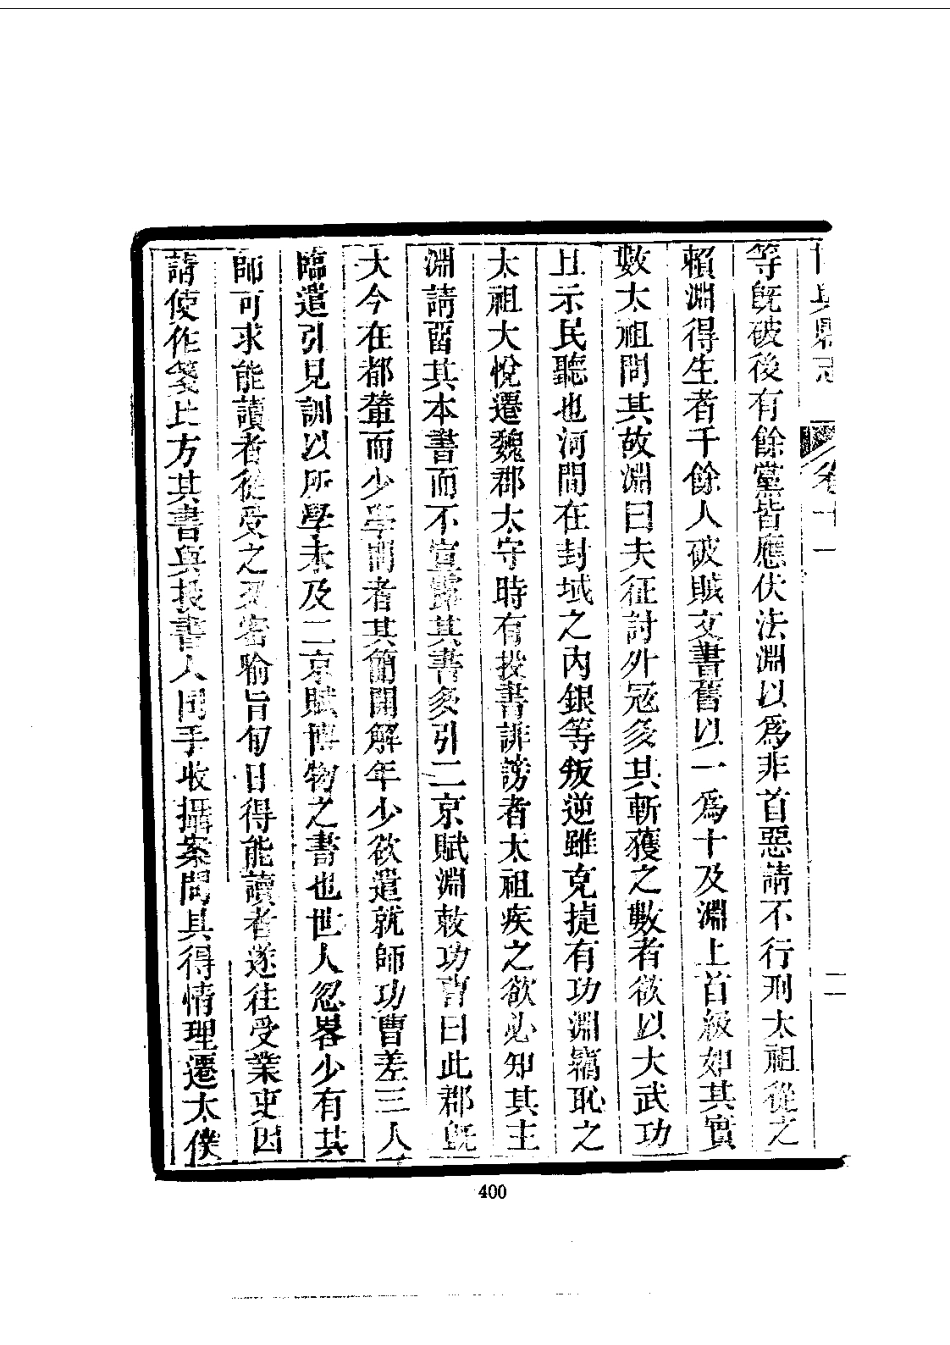 卷十一
二
等旣破後有餘黨皆應伏法淵以爲非首惡請不行刑太祖從之
賴淵得生者千餘人破賊文書舊以一爲十及淵上首級如其實
數太祖問其故淵曰夫征討外冦多其斬獲之數者欲以大武功
且示民聽也河間在封域之內銀等叛逆雖克捷有功淵竊恥之
太祖大悅遷魏郡太守時有投書誹謗者太祖疾之欲必知其主
淵請畱其本書而不宣露其書多引二京賦淵敕功曹曰此郡旣
大今在都輦而少學問者其簡開解年少欲遣就師功曹差三人
臨遣引見訓以所學未及二京賦博物之書也世人忽畧少有其
師可求能讀者從受之又密喻旨旬日得能讀者遂往受業吏因
請使作箋比方其書與投書人同手收攝案問具得情理遷太僕
400